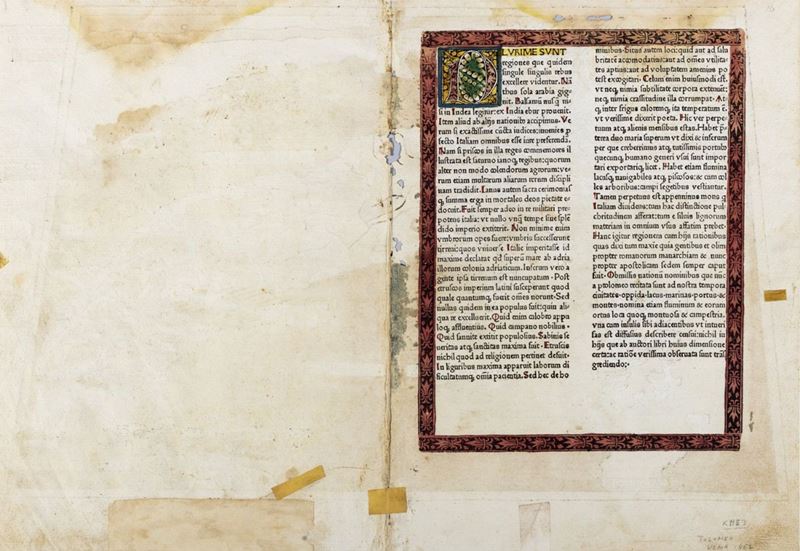 PLVRIME SVNT
regiones que quidem
singule singulis rebus
excellere videntur. Nā
thus sola arabia gig-
nit. Balsamū nusq̄ ni-
si in Iudea legitur: ex India ebur prouenit.
Item aliud ab alijs nationibꝰ accipimus. Ve
rum si exactissime cūcta iudices: in omnes p
fecto Italiam omnibus esse iure preferendā.
Nam si priscos in illa reges cōmemores il
lustrata est saturno ianoq, regibus: quorum
alter non modo colendorum agrorum: ve-
rum etiam multarum aliarum rerum discipli
nam tradidit. Ianus autem sacra cerimonias
q, summa erga in mortales deos pietate e-
docuit. Fuit semper adeo in re militari pre-
potens italia: vt nullo vnq̄ tempe sine splē
dido imperio extiterit. Non minime enim
vmbrorum opes fuere: vmbris successerunt
tirreni: quos vniuerse Italie imperitasse id
maxime declarat qd superū mare ab adria
illorum colonia adriaticum. Inferum vero a
gente ipsa tirrenum est nuncupatum. Post
etruscos imperium latini susceperunt quod
quale quantumq, fuerit omes norunt. Sed
nullus quidem in ea populus fuit: quin ali-
qua re excelluerit. Quid enim calabro appu
loq, affluentius. Quid campano nobilius.
Quid samnite extitit populosius. Sabinis se
ueritas atq, sanctitas maxima fuit. Etruscis
nichil quod ad religionem pertinet defuit.
In liguribus maxima apparuit laborum di
ficultatumq, omia pacientia. Sed hec de ho
minibus. Situs autem loci: quid aut ad salu
britatē acomodatius: aut ad omēs vtilita-
tes aptius: aut ad voluptatem amenius po
test excogitari. Celum enim huiusmodi est.
vt neq, nimia subtilitate corpora extenuet:
neq, nimia crassitudine illa corrumpat. At-
q, inter frigus caloremq, ita temperatum ē.
vt verissime dixerit poeta. Hic ver perpe-
tuum atq, alienis mensibus estas. Habet p̄
terea duo maria superum vt dixi & inferum
per que creberrimus atq, tutissimis portubꝰ
quecunq, humano generi vsui sunt impor
tari exportariq, licet. Habet etiam flumina
lacusq, nauigabiles atq, piscosos: & cum col
les arboribus: campi segetibus vestiantur.
Tamen perpetuus est appenninus mons q̄
Italiam diuidens: tum hac distinctione pul-
chritudinem afferat: tum e siluis lignorum
materiam in omnium vsus affatim prebet.
Hanc igitur regionem cum hijs rationibus
quas dixi tum maxie quia gentibus et olim
propter romanorum monarchiam & nunc
propter apostolicam sedem semper caput
fuit. Obmissis nationū nominibus que nūc
a ptolomeo recitata sunt ad nostra tempora
ciuitates-oppida-lacus-marinas-portus-&
montes-nomina etiam fluminum & eorum
ortus loca quoq, montuosa & campestria.
vna cum insulis sibi adiacentibus vt intuen
sas est diffusius describere censui: nichil in
hijs que ab auctori libri huius dimensione
certacue ratiōe verissima obseruata sunt trās
grediendo:·